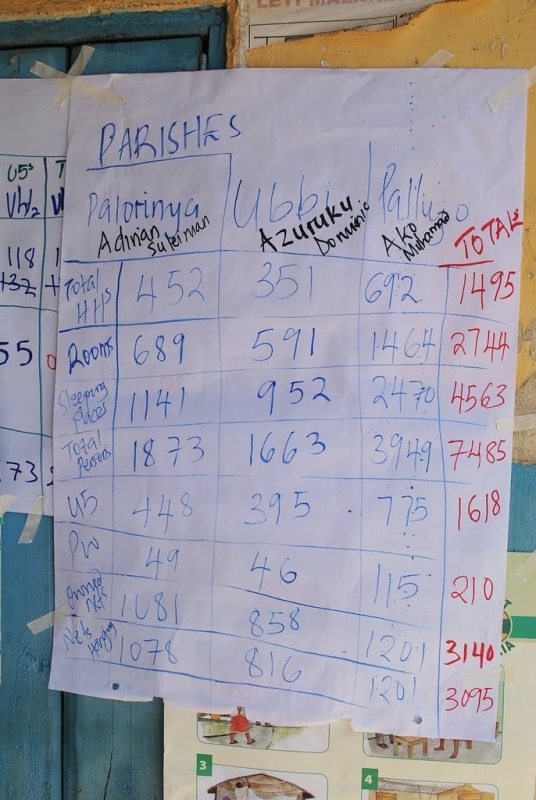 LETI MALARI
PARISHES
Palorinya Ubbi Palujo
Adinan Sulerman Azuruku Dominic Ako Muhamad TOTALS
Total HHs 452 351 692 1495
Rooms 689 591 1464 2744
Sleeping Places 1141 952 2470 4563
Total Persons 1873 1663 3949 7485
U5 448 395 775 1618
PW 49 46 115 210
Owned Nets 1081 858 1201 3140
Nets Hanging 1078 816 1201 3095
U5s
Vht2
118
+32
55
73
3 4